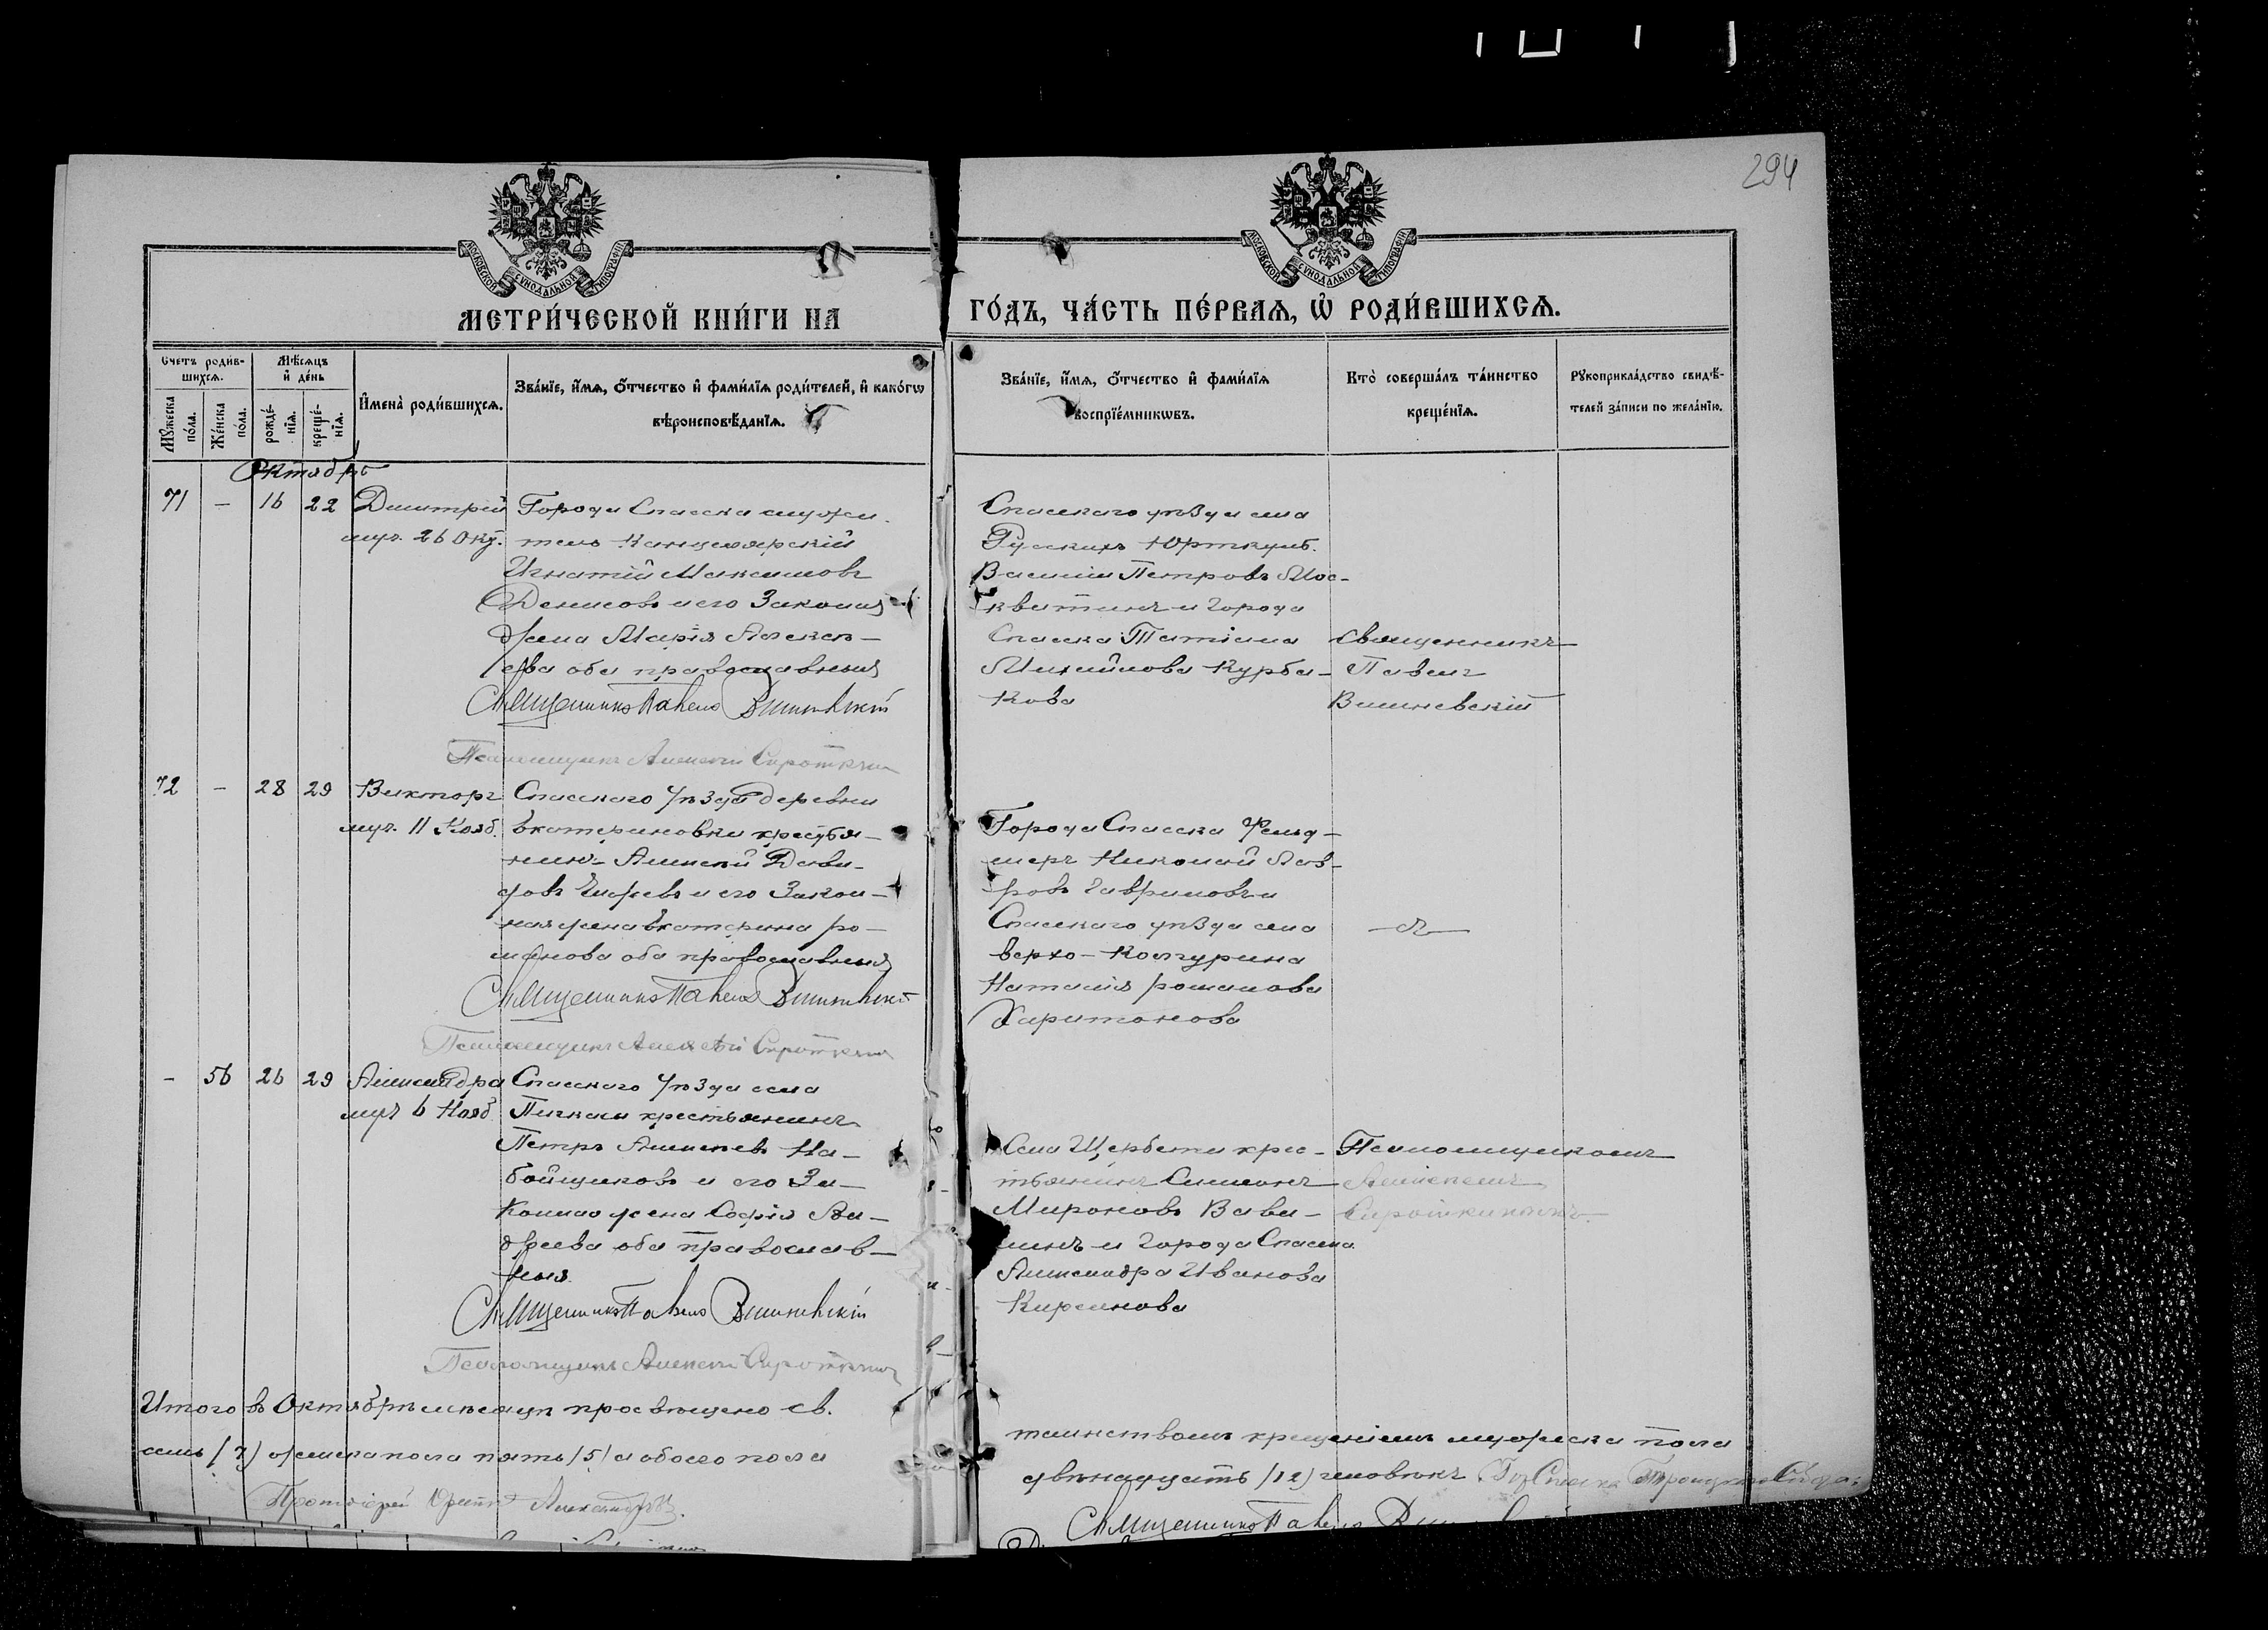 294
МОСКОВСКОЙ СѴНОДАЛЬНОЙ ТИПОГРАФІИ
МОСКОВСКОЙ СѴНОДАЛЬНОЙ ТИПОГРАФІИ
МЕТРИ́ЧЕСКОЙ КНИ́ГИ НА
ГО́ДЪ, ЧА́СТЬ ПЕ́РВАѦ, Ѡ҆ РОДИ́ВШИХСѦ.
Счетъ роди́вшихсѧ.
Мꙋ́жеска по́ла.
Же́нска по́ла.
Мѣ́сѧцъ и҆ де́нь
рожде́нїѧ.
креще́нїѧ.
И҆мена̀ роди́вшихсѧ.
Зва́нїе, и҆́мѧ, ѻ҆́тчество и҆ фами́лїѧ роди́телей, и҆ како́гѡ
вѣроисповѣ́данїѧ.
Зва́нїе, и҆́мѧ, ѻ҆́тчество и҆ фами́лїѧ
воспрїе́мникѡвъ.
Кто̀ соверша́лъ та́инство
креще́нїѧ.
Рꙋкоприкла́дство свидѣ́-
телей за́писи по жела́нїю.
Октябрь
71 - 16 22 Димитрій
муч. 26 Окт.
Города Спасска служи-
тель Канцелярскій
Игнатій Максимовъ
Денисовъ и его Законная
жена Марія Алексе-
ева оба православныя
Священникъ Павелъ Вишневскій
Псаломщикъ Алексѣй Сироткинъ
Спасскаго уѣзда села
Русскихъ Юрткуль
Василій Петровъ Мос-
квитинъ и города
Спасска Татіана
Михайлова Курба-
кова
Священникъ
Павелъ
Вишневскій
72 - 28 29 Викторъ
муч. 11 Нояб.
Спасскаго уѣзда деревни
Екатериновки крестья-
нинъ Алексѣй Дави-
довъ и его Закон-
ная жена Екатерина Ро-
манова оба православныя
Священникъ Павелъ Вишневскій
Псаломщикъ Алексѣй Сироткинъ
Города Спасска Фельд-
шеръ Николай Лав-
ровъ Гавриловъ и
Спасскаго уѣзда села
Верхо-Колчурина
Наталія Романова
Харитонова
- 56 26 29 Александра
муч 6 Нояб.
Спасскаго уѣзда села
крестьянинъ
Петръ Алексѣевъ На-
бойщиковъ и его За-
конная жена Софія Ан-
дреева оба православ-
ныя
Священникъ Павелъ Вишневскій
Псаломщикъ Алексѣй Сироткинъ
Села Щербети крес-
тьянинъ Симеонъ
Мироновъ Вави-
линъ и города Спасска
Александра Иванова
Кирсанова
Псаломщикомъ
Алексѣемъ
Сироткинымъ.
Итого въ Октябрѣ мѣсяцѣ просвѣщено св.
таинствомъ крещеніемъ мужеска пола
семь (7) женска пола пять (5) а обоего пола
двѣнадцать (12) человѣкъ
Протоіерей
Священникъ Павелъ